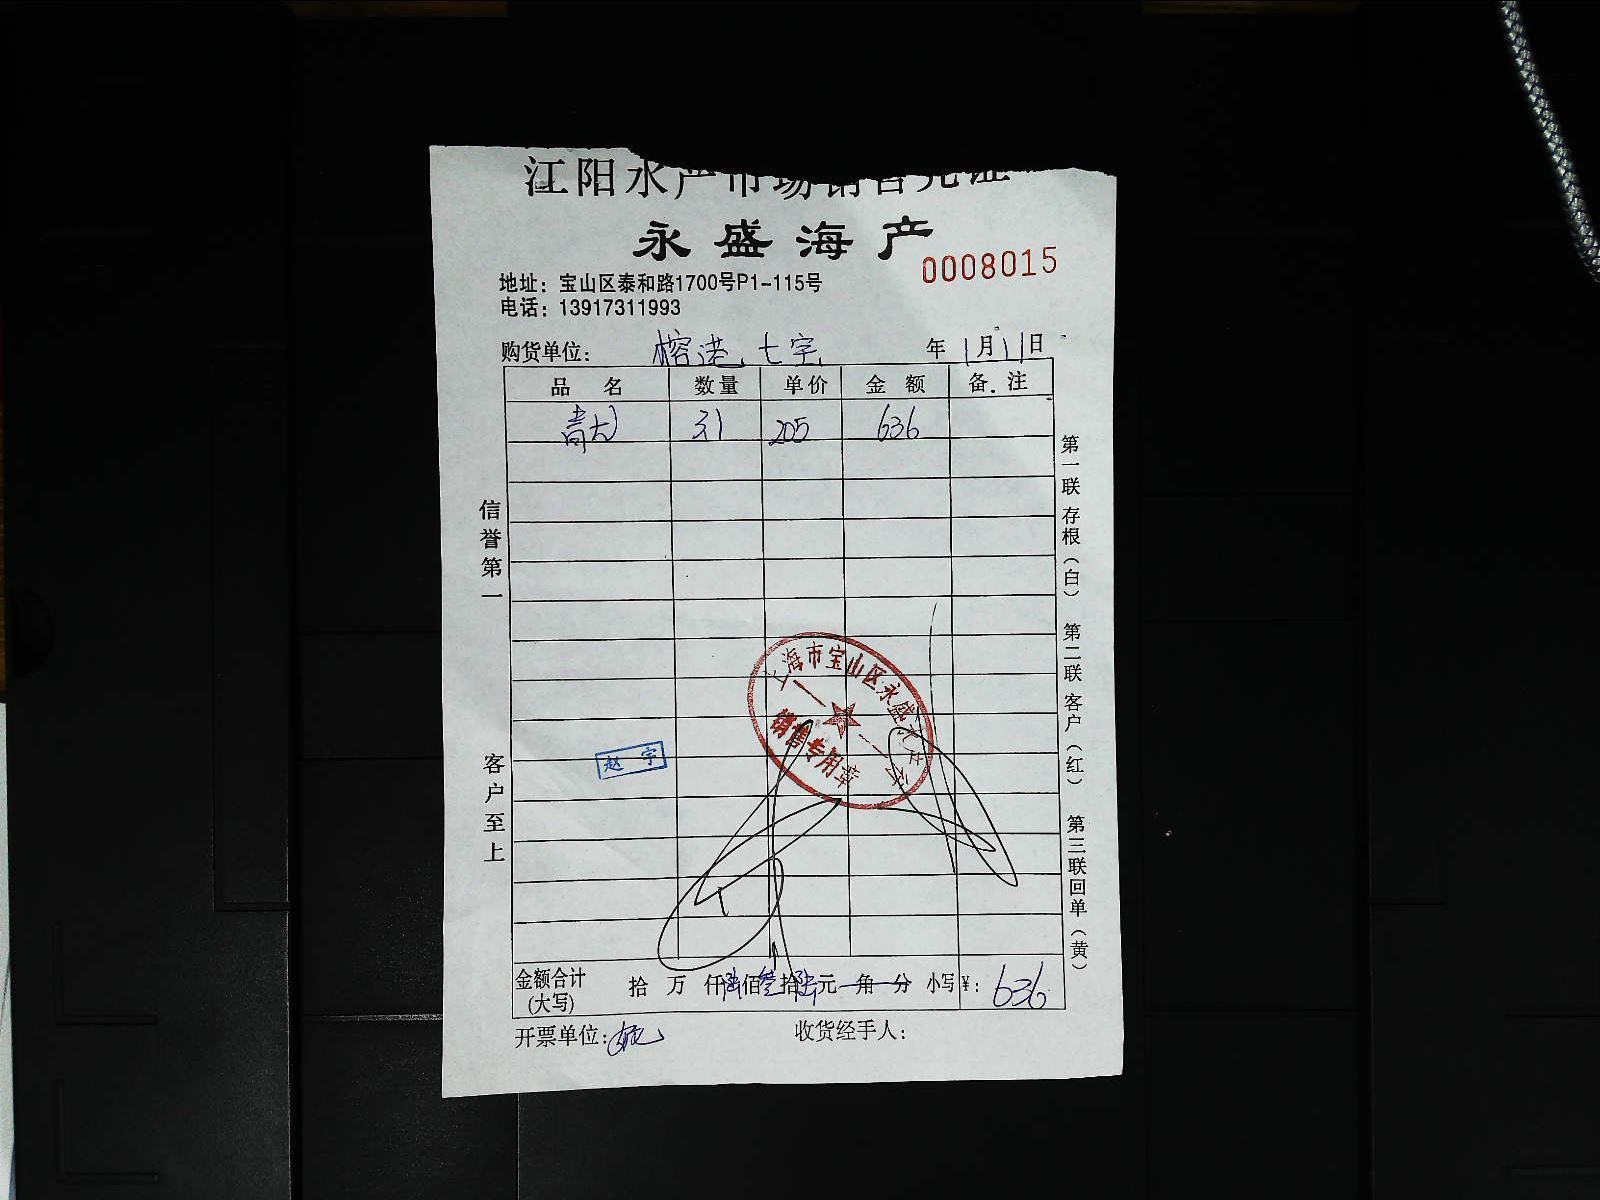 江阳水产市场销售凭证
永盛海产
0008015
地址：宝山区泰和路1700号P1-115号
电话：13917311993
购货单位： 榕港 七宝 年 1月11日
品 名 数量 单价 金 额 备 注
青龙 31 205 636
信誉第一
客户至上
第一联 存根（白） 第二联 客户（红） 第三联 回单（黄）
上海市宝山区永盛
销售专用章
赵宇
金额合计(大写) 拾 万 仟陆佰叁拾陆元 角 分 小写¥：636
开票单位：
收货经手人：